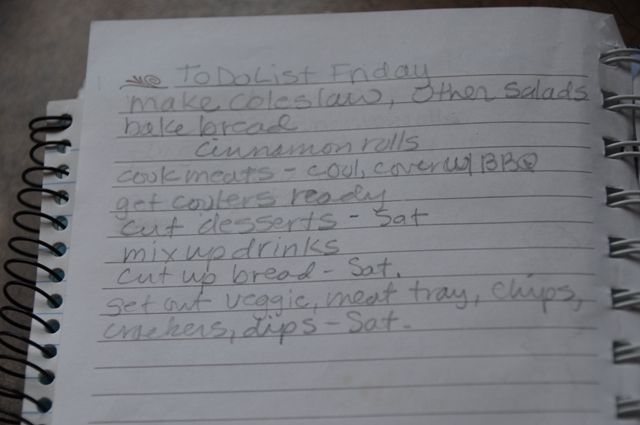 To Do List Friday
make coleslaw, other salads
bake bread
cinnamon rolls
cook meats - cool, cover w/ BBQ
get coolers ready
cut desserts - Sat
mix up drinks
cut up bread - Sat.
set out veggie, meat tray, chips,
crackers, dips - Sat.